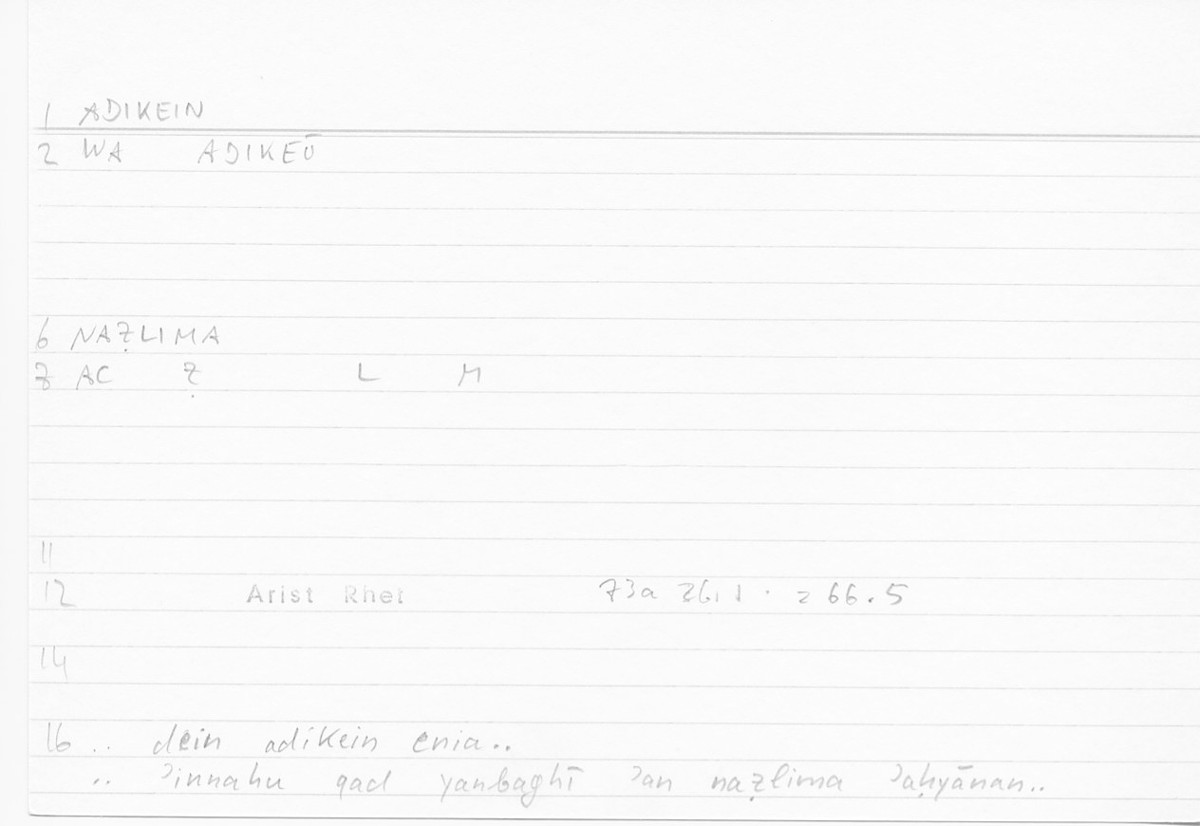 1 ADIKEIN
2 WA ADIKEŌ
6 NAẒLIMA
7 AC Ẓ L M
11
12 Arist Rhet 73a 26,1 · = 66.5
14
16 .. dein adikein enia..
.. ʾinnahu qad yanbaghī ʾan naẓlima ʾaḥyānan..